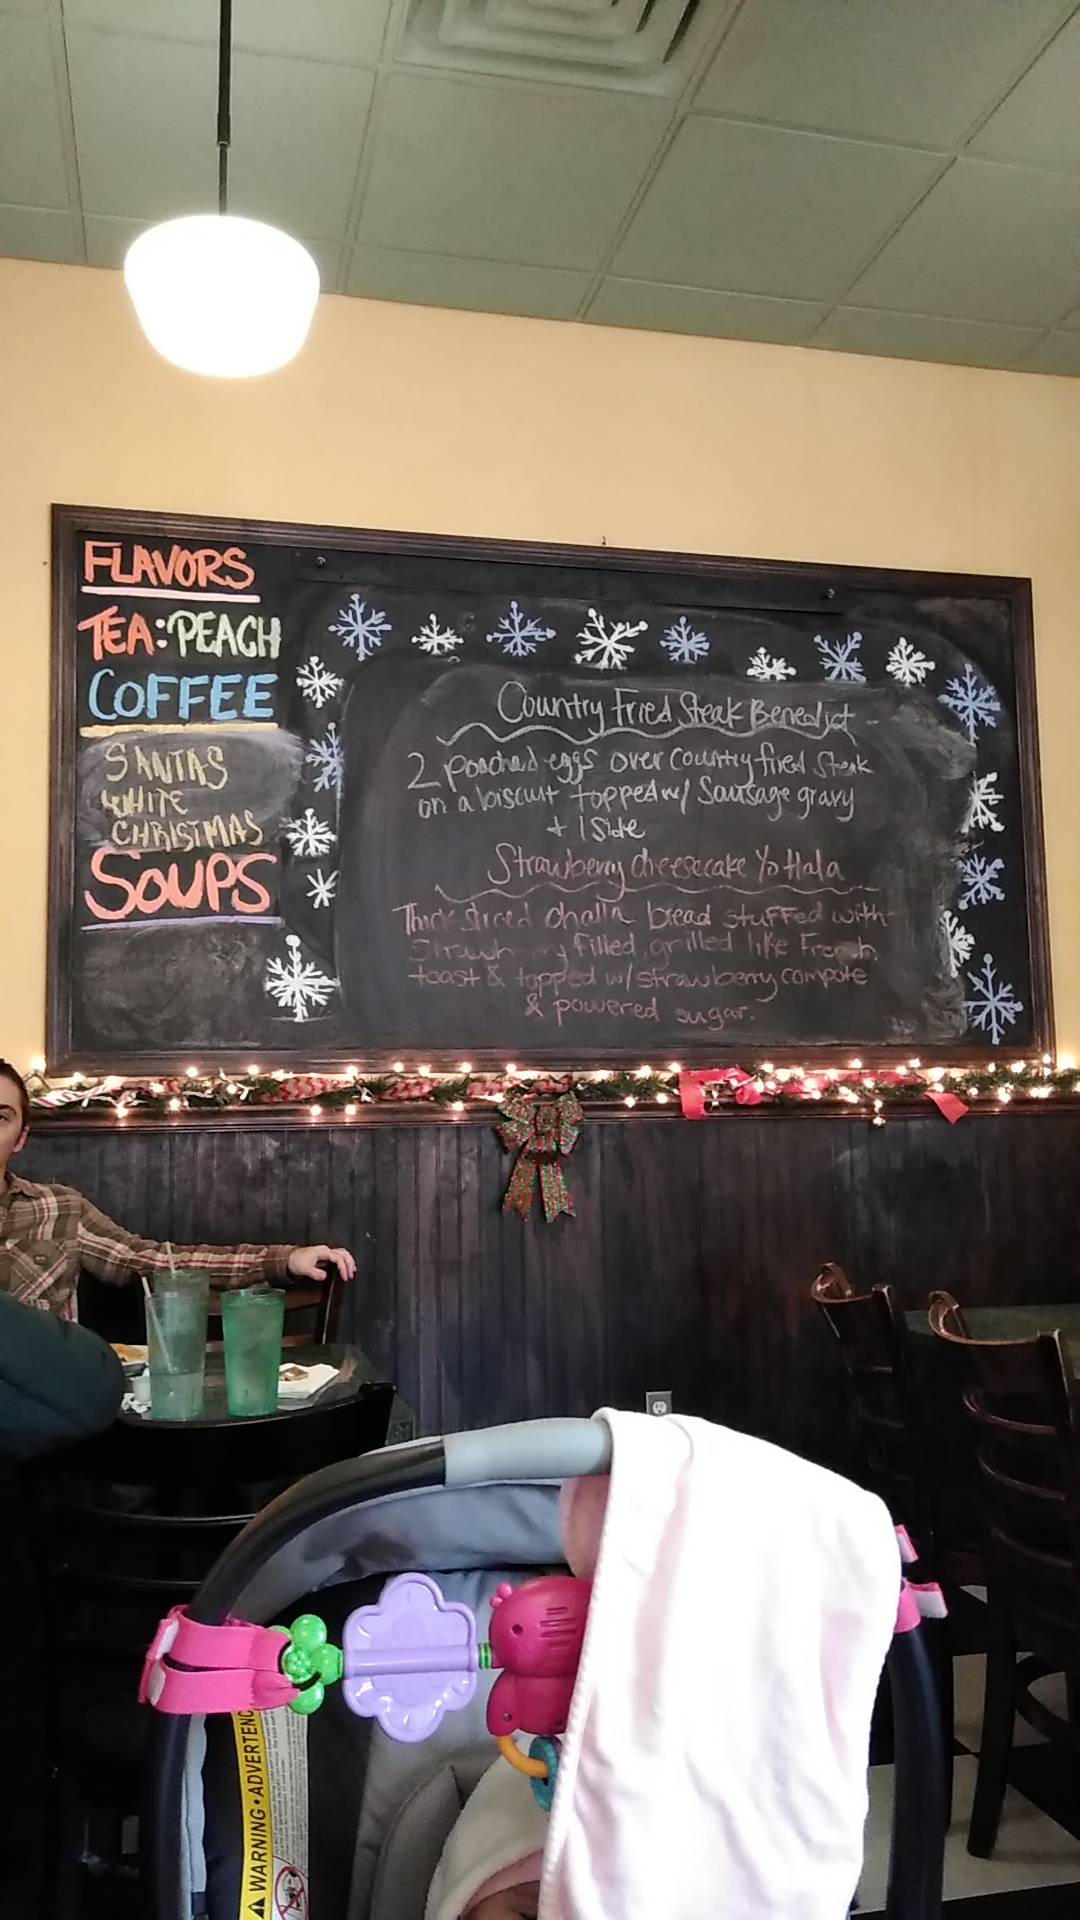 FLAVORS
TEA: PEACH
COFFEE
SANTAS
WHITE
CHRISTMAS
SOUPS
Country Fried Steak Benedict
2 poached eggs over country fired steak
on a biscuit topped w/ Sausage gravy
+ 1 side
Strawberry cheesecake Yo Hala
Thick sliced challa bread stuffed with
filled, grilled like French
toast & topped w/ strawberry compote
& powered sugar.
WARNING • ADVERTENC